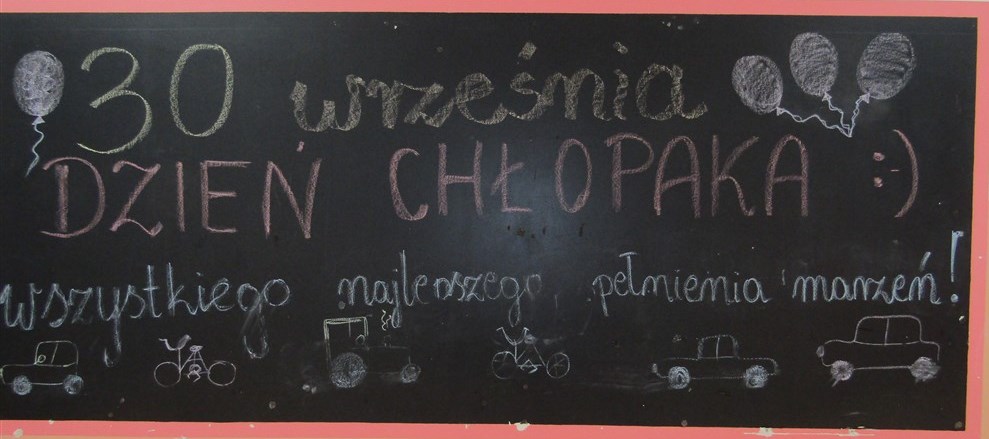 30 września
DZIEŃ CHŁOPAKA :)
wszystkiego najlepszego pełnienia marzeń!